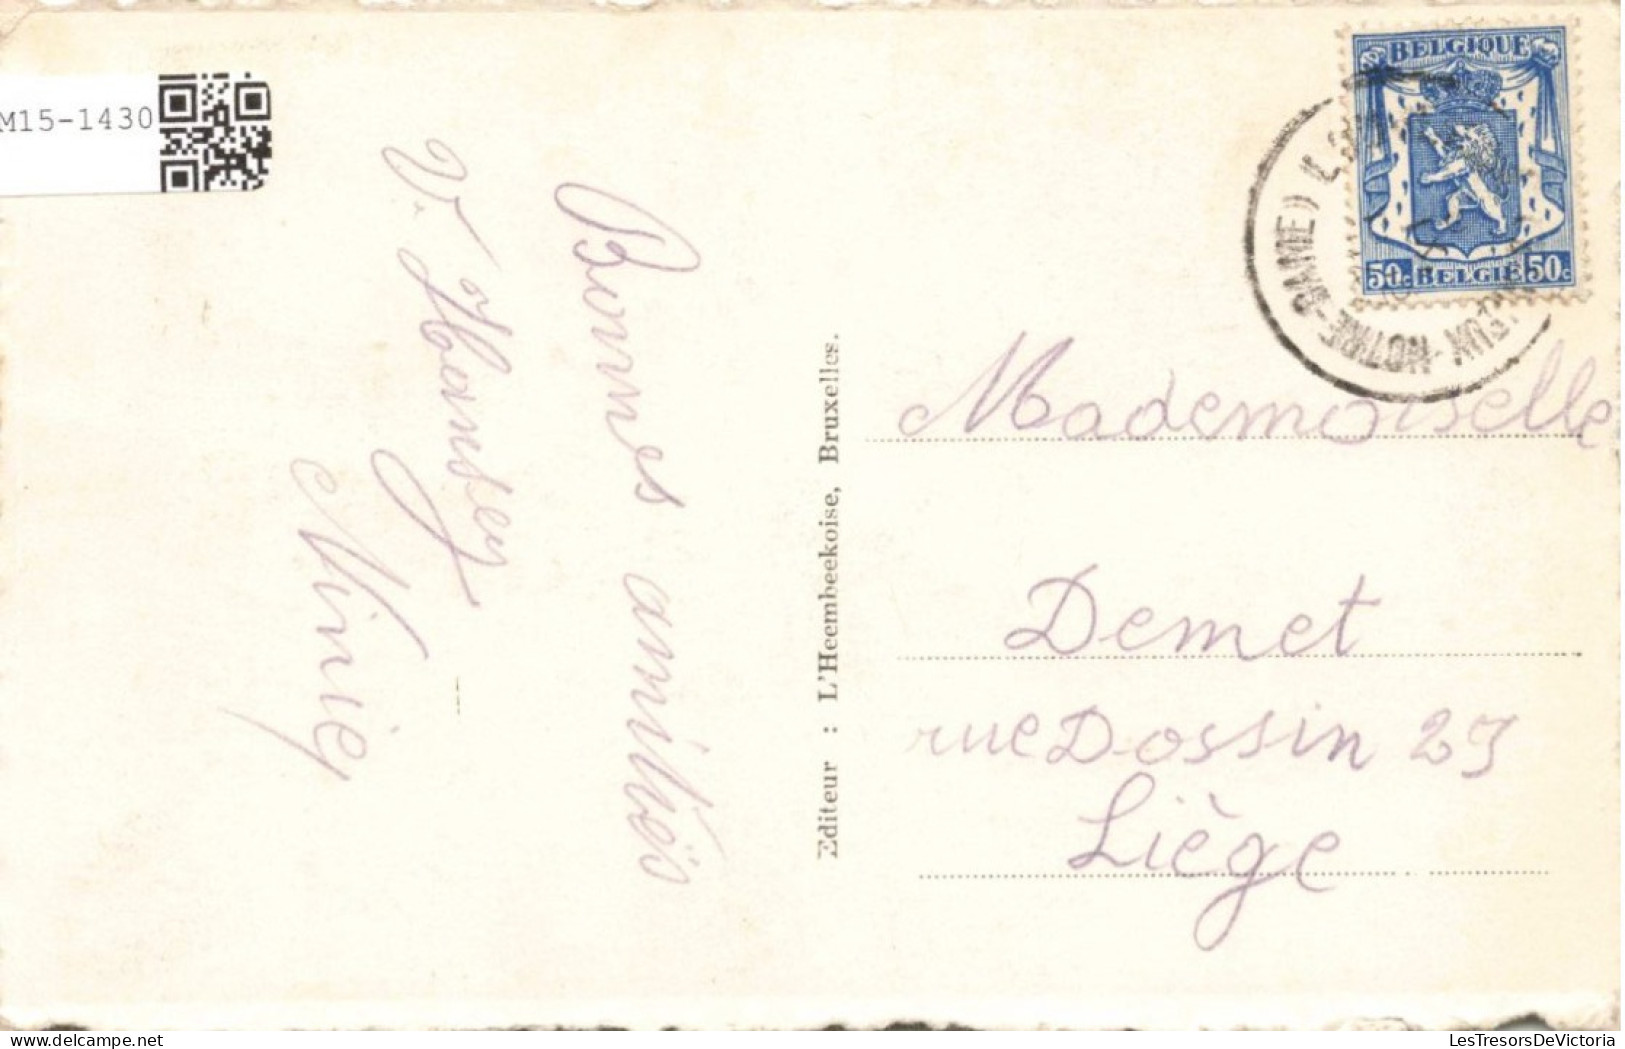 M15-1430
Bonnes amitiés
V. Honsey
Miniez
Editeur : L'Heembeekoise, Bruxelles.
BELGIQUE
50c BELGIË 50c
-NOTRE-DAME)) (L
Mademoiselle
Demet
rue Dossin 23
Liège
delcampe.net
LesTresorsDeVictoria